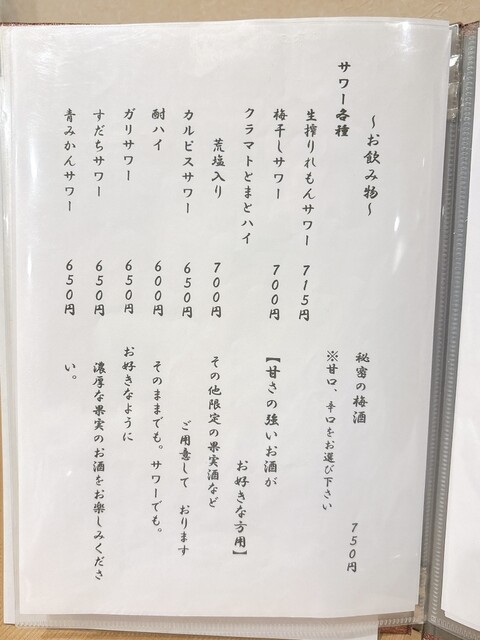 ～お飲み物～
サワー各種
生搾りれもんサワー 715円
梅干しサワー 700円
クラマトとまとハイ
荒塩入り 700円
カルピスサワー 650円
酎ハイ 600円
ガリサワー 650円
すだちサワー 650円
青みかんサワー 650円
秘密の梅酒 750円
※甘口、辛口をお選び下さい
【甘さの強いお酒が
お好きな方用】
その他限定の果実酒など
ご用意して おります
そのままでも。サワーでも。
お好きなように
濃厚な果実のお酒をお楽しみくださ
い。